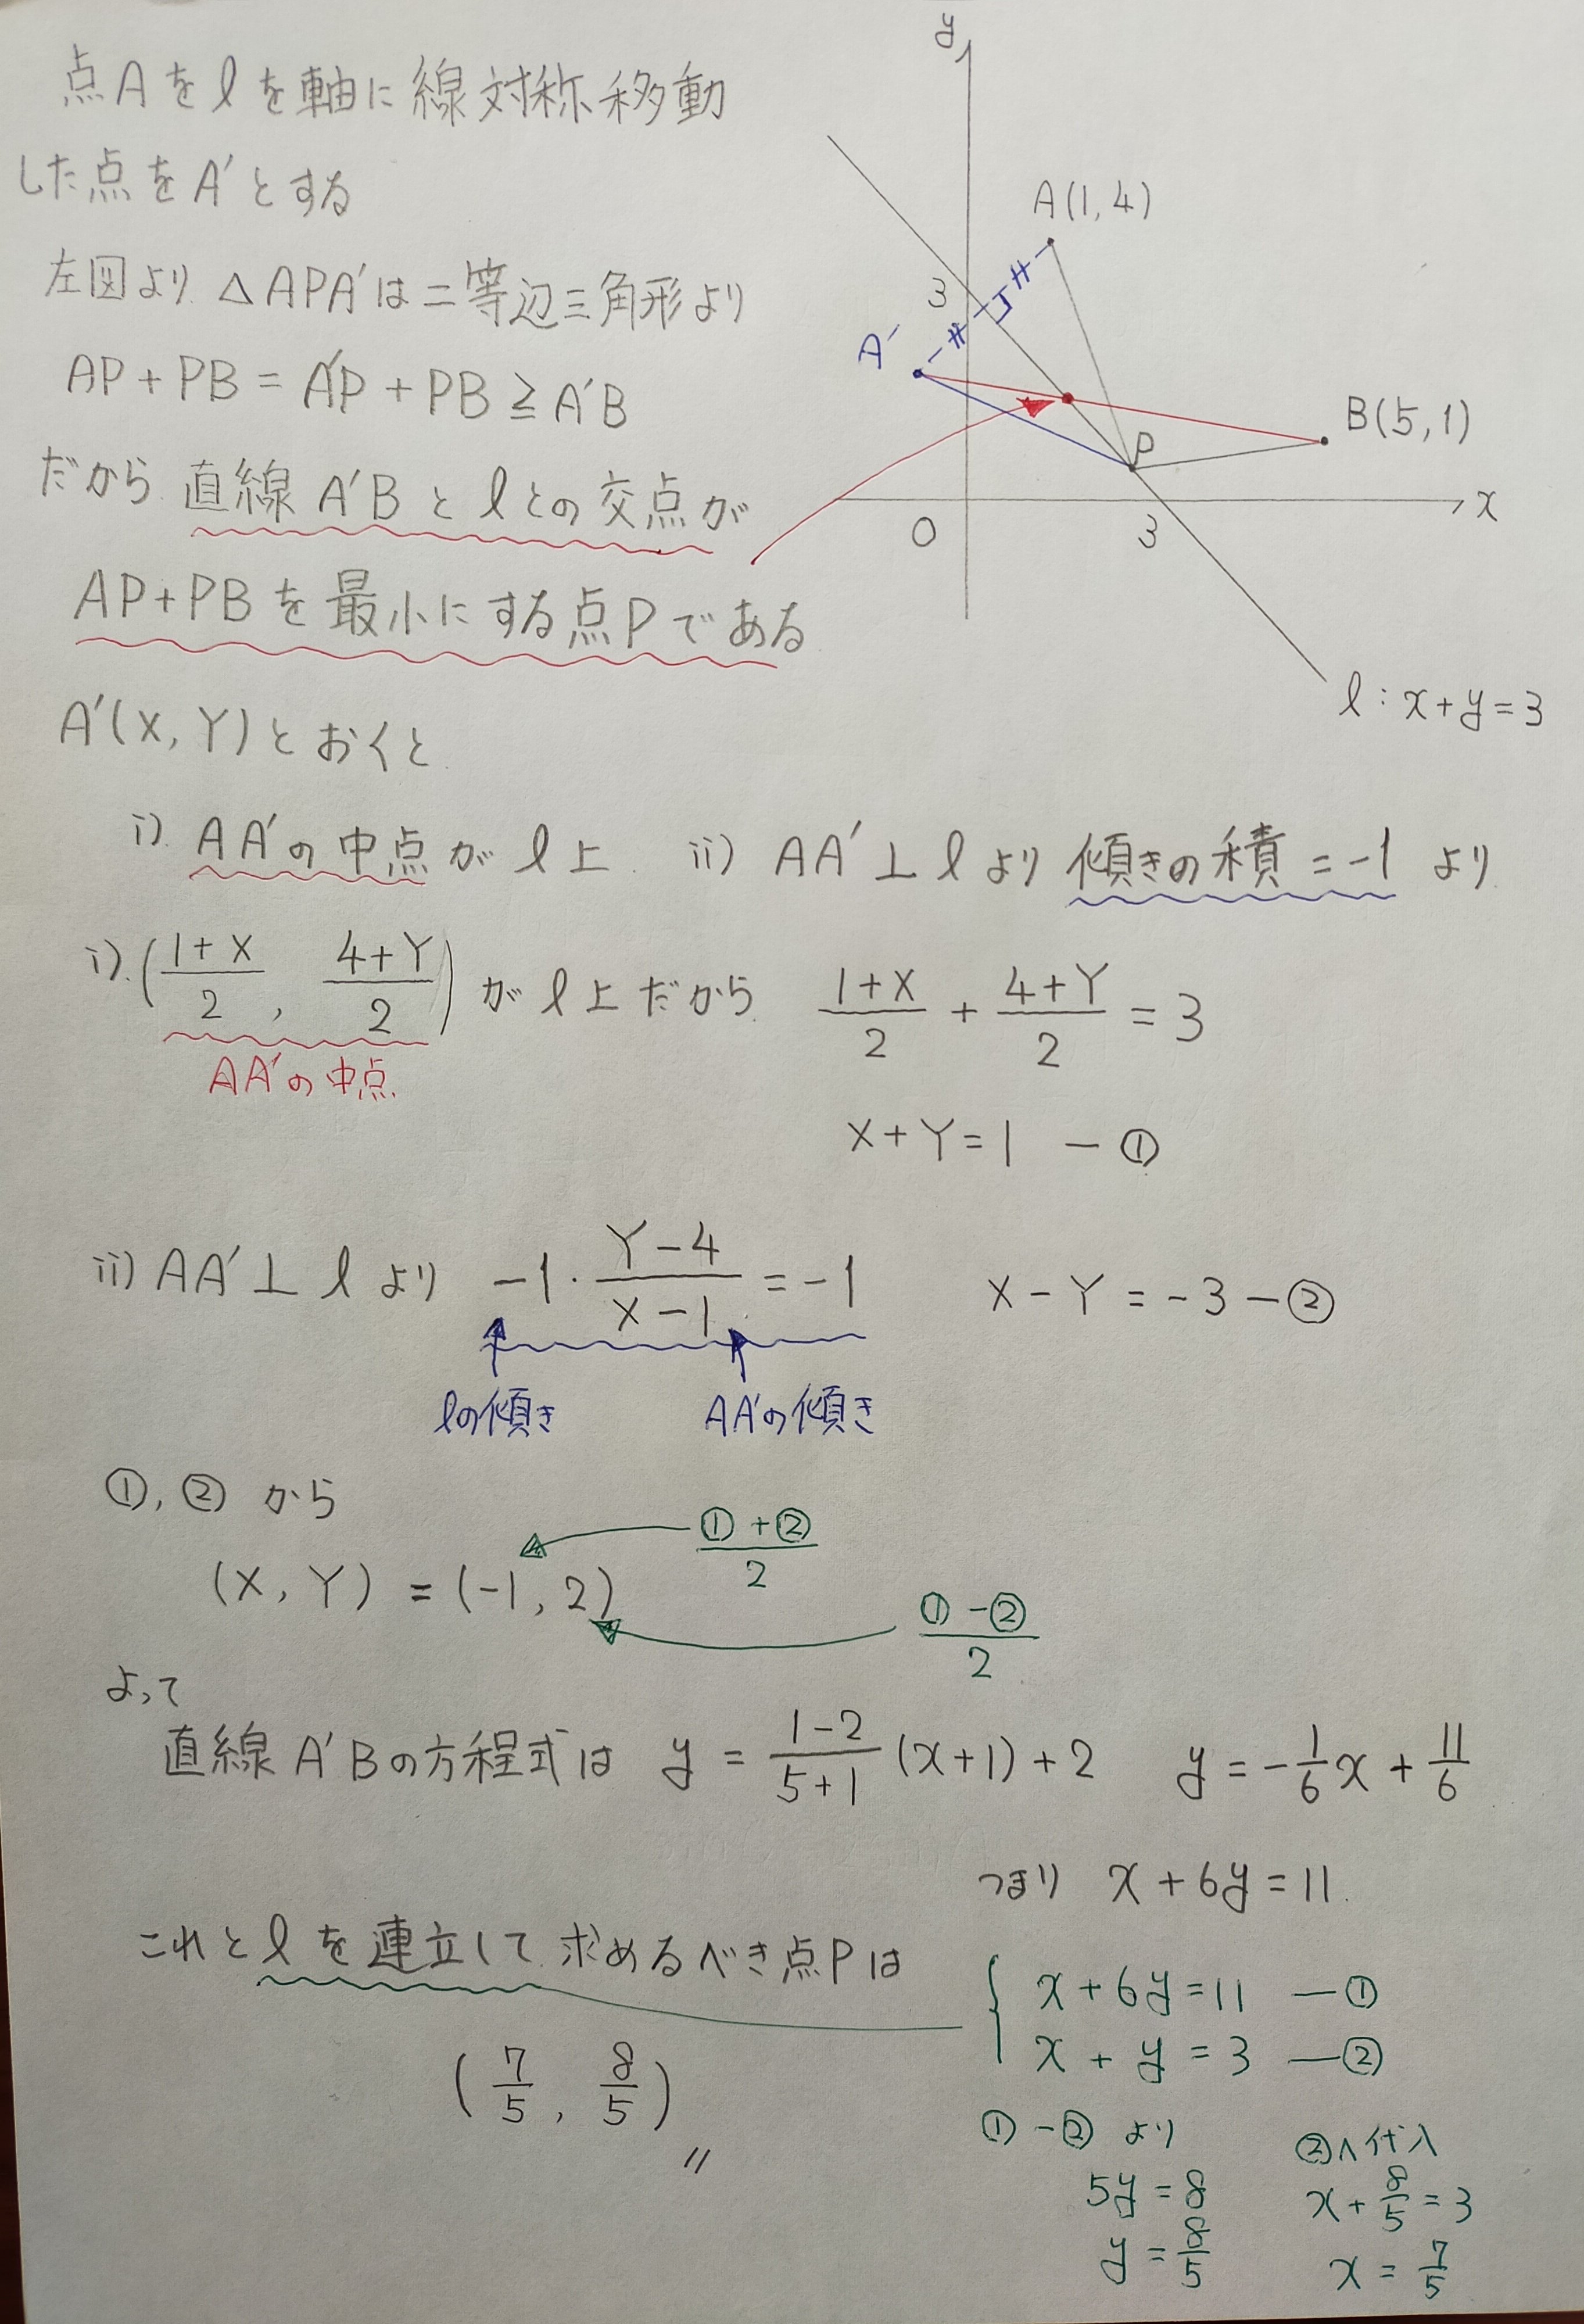 点Aをlを軸に線対称移動
した点をA'とする
左図より △APA'は二等辺三角形より
AP+PB = A'P+PB ≧ A'B
だから 直線A'Bとlとの交点が
AP+PBを最小にする点Pである
y
A(1,4)
3
A'
B(5,1)
P
O
3
x
l:x+y=3
A'(X,Y)とおくと
i) AA'の中点がl上 ii) AA'⊥lより 傾きの積=-1 より
i) ((1+X)/2, (4+Y)/2) がl上だから (1+X)/2 + (4+Y)/2 = 3
AA'の中点
X+Y=1 -①
ii) AA'⊥lより -1・(Y-4)/(X-1) = -1 X-Y=-3-②
lの傾き AA'の傾き
①,②から
(①+②)/2
(X,Y) = (-1,2)
(①-②)/2
よって
直線A'Bの方程式は y = (1-2)/(5+1) (x+1)+2 y = -1/6 x + 11/6
つまり x+6y=11
これとlを連立して求めるべき点Pは
(7/5, 8/5) 〃
x+6y=11 -①
x+y=3 -②
①-②より
5y=8
y=8/5
②へ代入
x+8/5=3
x=7/5